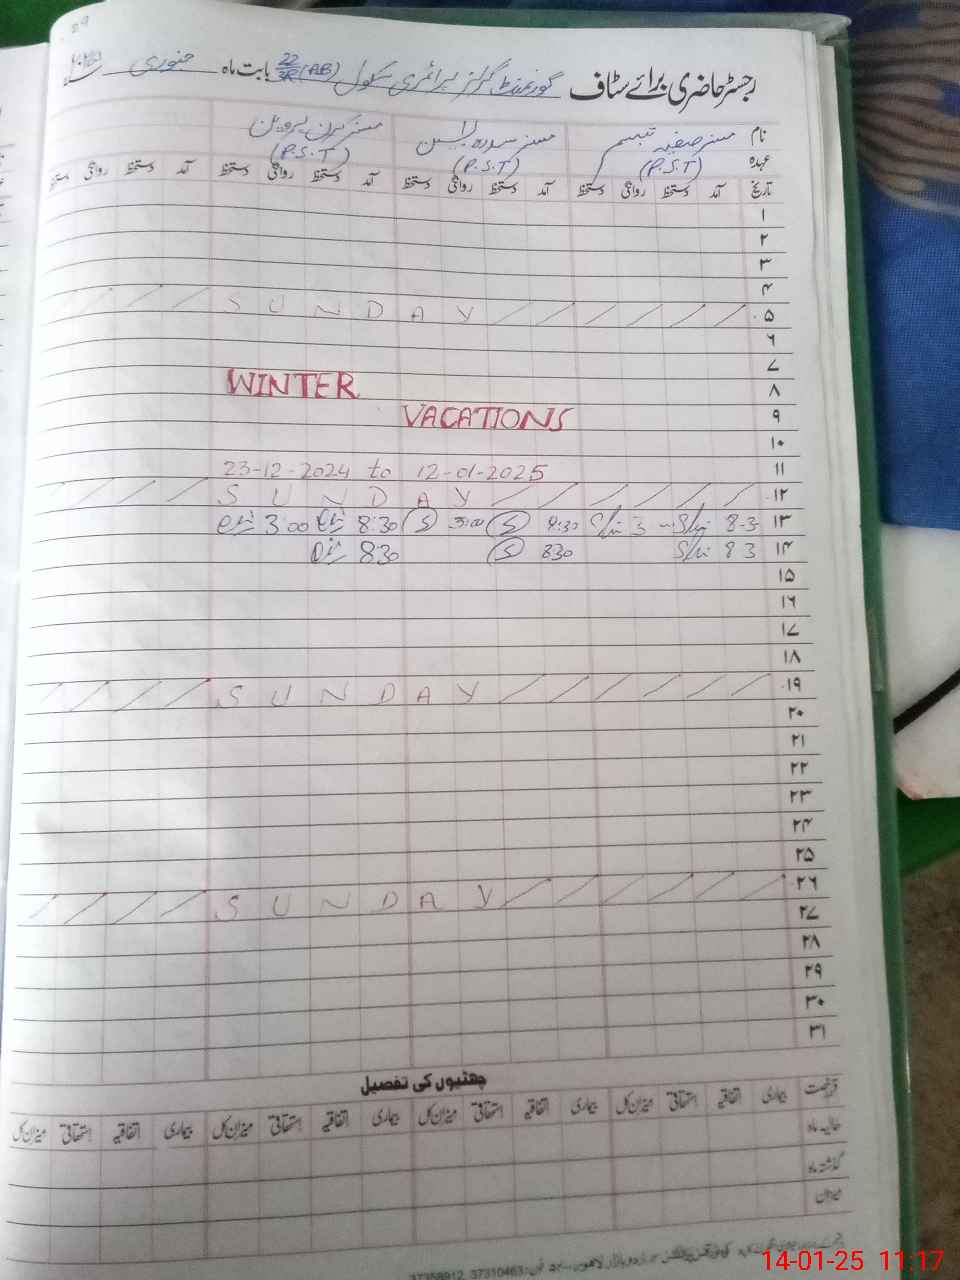 رجسٹر حاضری برائے سٹاف گورنمنٹ گرلز پرائمری سکول 22/3R (AB) بابت ماہ جنوری
نام مسز صفیہ تبسم مسز سدرہ مسز کرن پروین
عہدہ (P.S.T) (P.S.T) (P.S.T)
تاریخ آمد دستخط روانگی دستخط آمد دستخط روانگی دستخط آمد دستخط روانگی دستخط آمد دستخط روانگی دستخط
۱
۲
۳
۴
۵ SUNDAY
۶
۷
۸ WINTER
۹ VACATIONS
۱۰
۱۱ 23-12-2024 to 12-01-2025
۱۲ SUNDAY
۱۳ 3:00 8:30 S 3:00 S 8:30 3 8-3
۱۴ 830 S 830 8 3
۱۵
۱۶
۱۷
۱۸
۱۹ SUNDAY
۲۰
۲۱
۲۲
۲۳
۲۴
۲۵
۲۶ SUNDAY
۲۷
۲۸
۲۹
۳۰
۳۱
چھٹیوں کی تفصیل
قسم رخصت بیماری اتفاقیہ استحقاقی میزان کل بیماری اتفاقیہ استحقاقی میزان کل بیماری اتفاقیہ استحقاقی میزان کل بیماری اتفاقیہ استحقاقی میزان کل
حالیہ ماہ
گذشتہ ماہ
میزان
37310463, 37358912
14-01-25 11:17